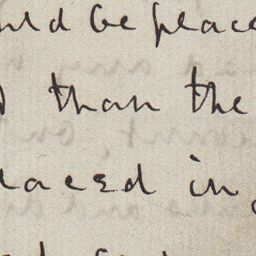 uld be place
than the
laced in